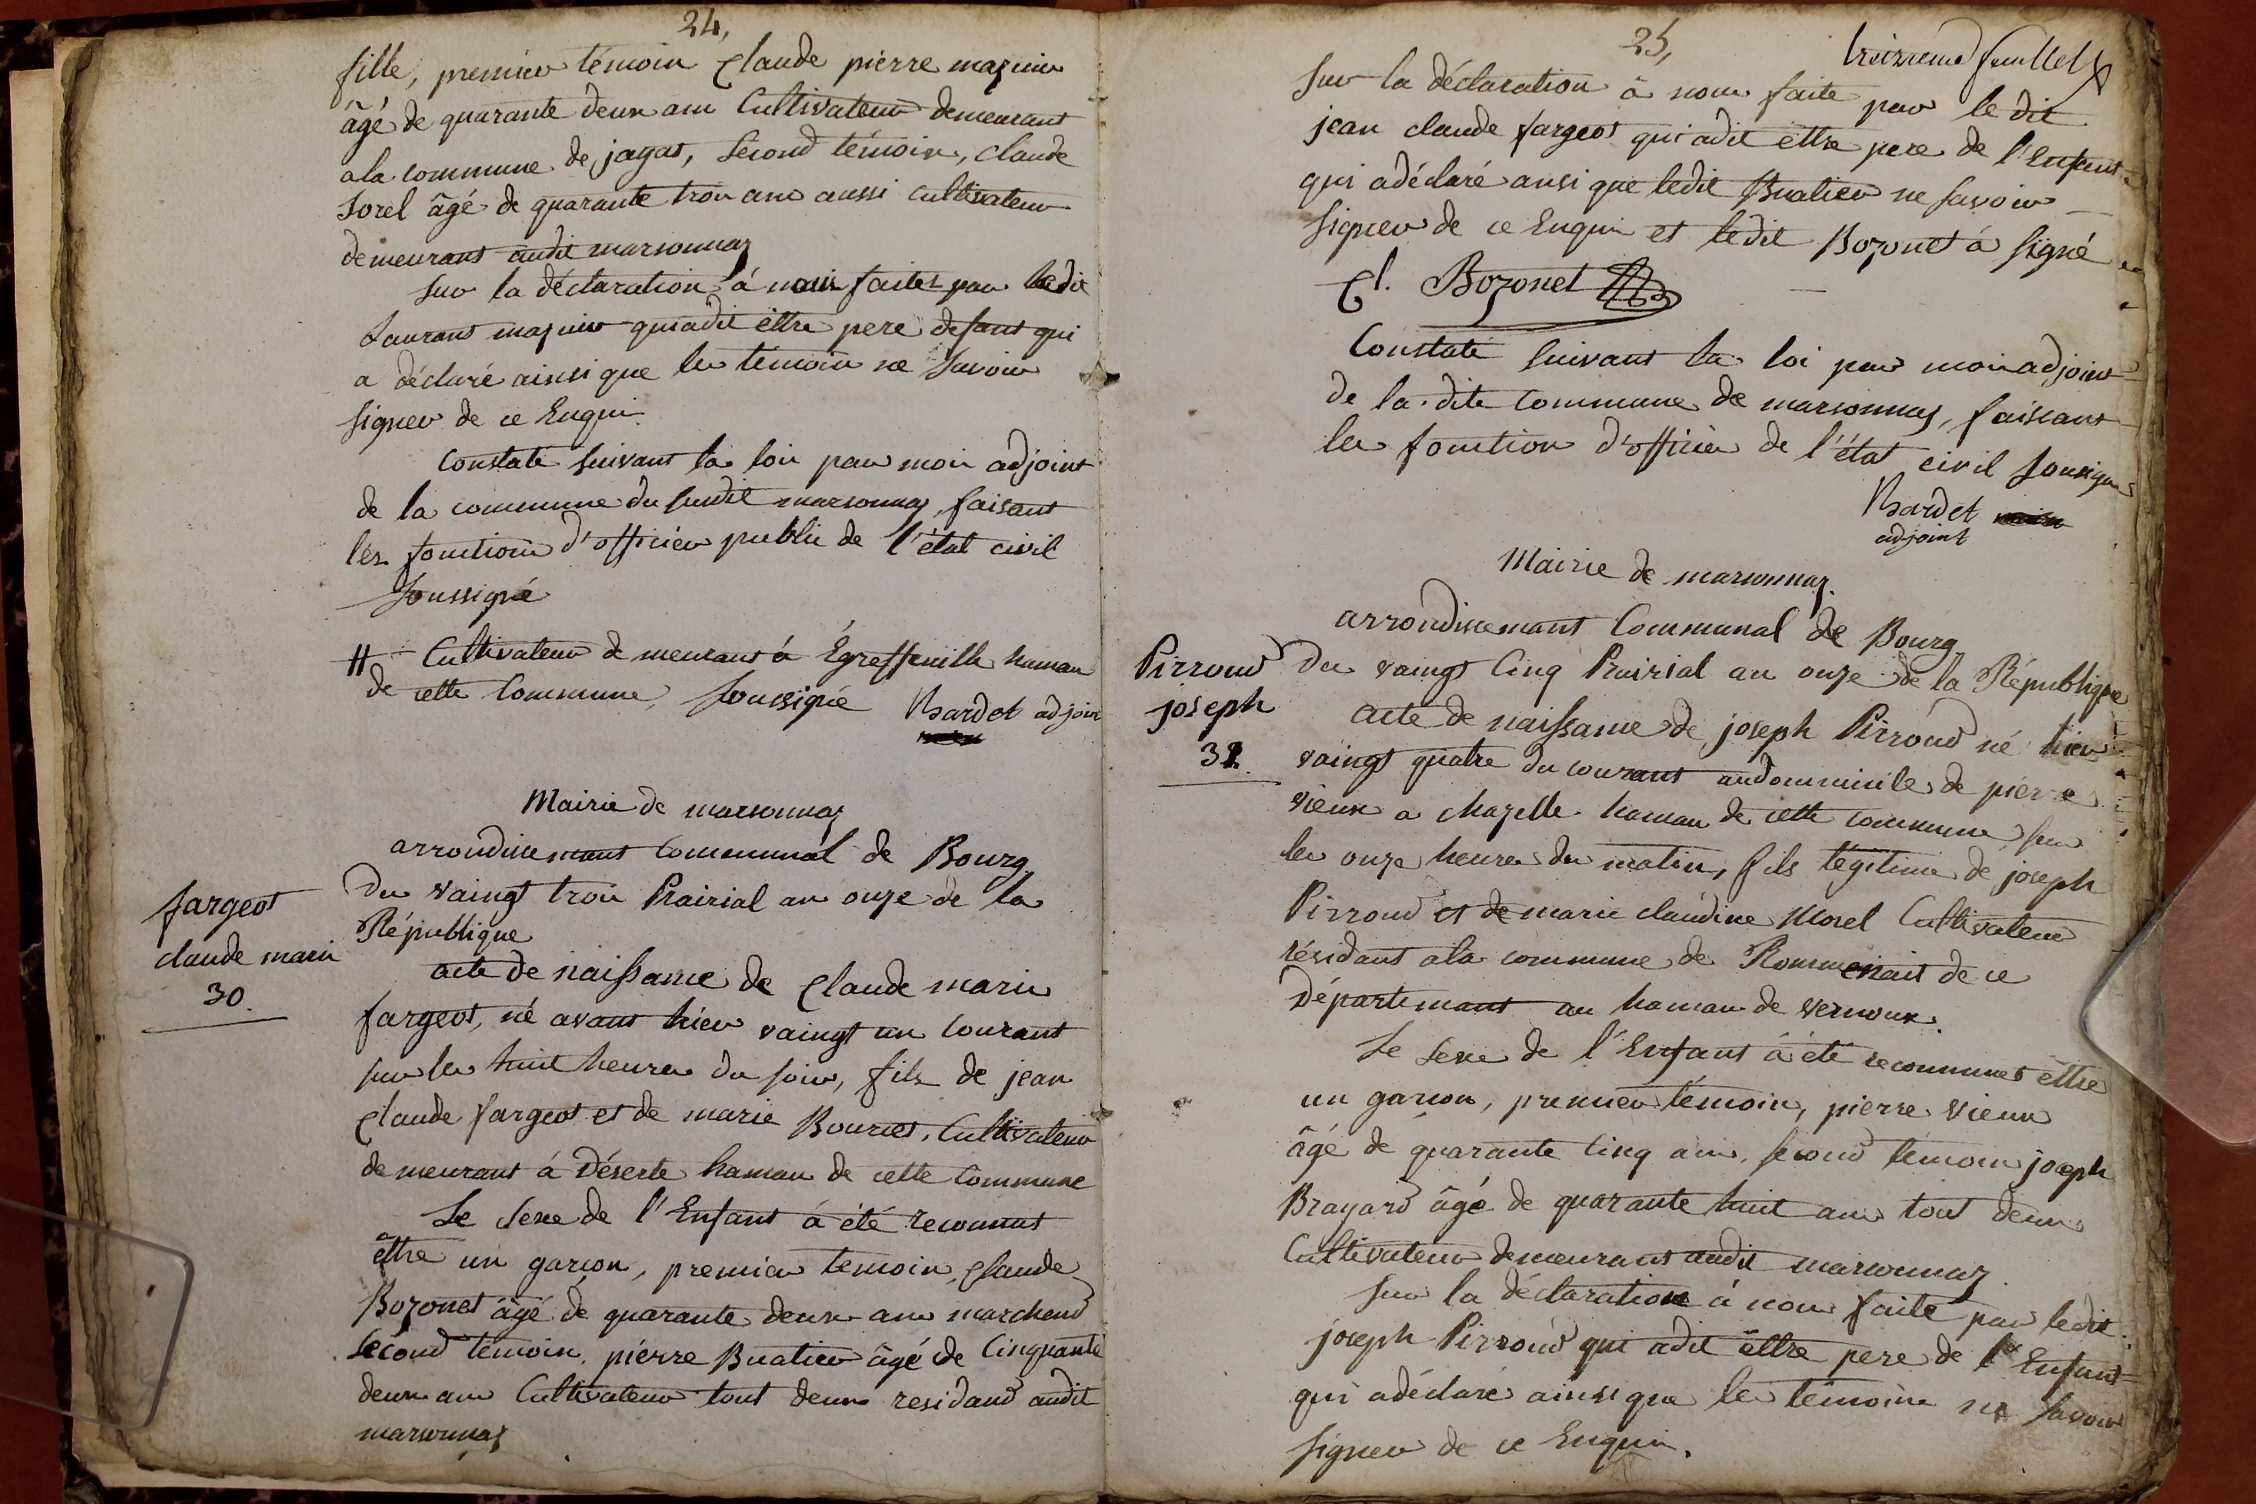 24,
fille, premier témoin Claude pierre mazuir
âgé de quarante deux ans Cultivateur demeurant
a la commune de jayat, Second témoin, claude
Sorel âgé de quarante trois ans aussi cultivateur
demeurant audit marsonnaz
sur la déclaration à nous faite par ledit
Laurent mazuir qui a dit être pere qui
a déclaré ainsi que les témoins ne Savoir
signer de ce Enquis
Constaté suivant la loi par moi adjoint
de la commune du susdit marsonnaz, faisant
les fonctions d'officier public de l'état civil
Soussigné
# Cultivateur demeurant à Égreffeuille hamau
de cette Commune, Soussigné Bardet adjoin
Mairie de marsonnaz
arrondissemant Communal de Bourg
fargeot
claude marie
30.
Du vaingt trois Prairial an onze de la
République
acte de naissance de Claude marie
fargeot, né avant hier vaingt un Courant
sur les huit heures du soir, fils de jean
Claude fargeot et de marie Bourcet, Cultivateur
demeurant à Déserte hamau de cette Commune
Le Sexe de l'Enfant à été reconnut
être un garcon, premier temoin, Claude
Bozonet âgé de quarante deux ans marchend
Second témoin, pierre Buatier âgé de Cinquante
deux ans Cultivateur tout deux residand audit
marsonnaz
25,
treizieme feuillet
Sur la déclaration à nous faite par le dit
jean claude fargeot qui a dit être pere de l'Enfant
qui a déclaré ansi que ledit Buatier ne Savoir
Signer de ce Enquis et ledit Bozonet à Signé
Cl. Bozonet
Constaté suivant la loi par moi adjoint
de la dite Commune de marsonnaz, faiseant
les fonction d'officier de l'état civil Sousigné
Bardet
adjoint
Mairie de marsonnaz.
arrondissemant Communal de Bourg
Pirroud
joseph
31.
Du vaingt Cinq Prairial an onze de la République
acte de naissance de joseph Pirroud né hier
vaingt quatre du courant audomminile de pierre
vieux a Chazelle hamau de cette commune sur
les onze heures du matin, fils légitime de joseph
Pirroud et de marie claudine Morel Cultivateur
résidant a la commune de Rommenait de ce
Départemant au hamau de vernoux.
Le Sexe de l'Enfant à été reconnut être
un garcon, premier témoin, pierre vieux
âgé de quarante Cinq ans, Second témoin joseph
Brayard âgé de quarante huit ans tout deux
Cultivateur demeurant audit marsonnaz.
Sur la déclaration à nous faite par ledit
joseph Pirroud qui a dit être pere de l'Enfant
qui a déclaré ainsi que les témoins ne Savoir
Signer de ce Enquis.